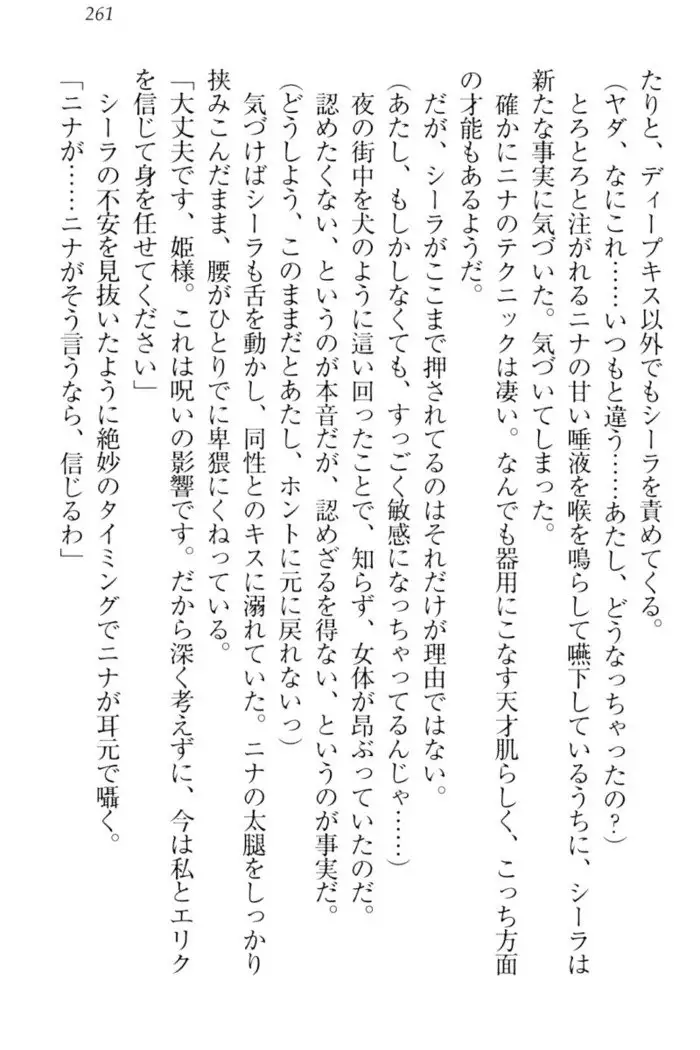 261
たりと、ディープキス以外でもシーラを責めてくる。
(ヤダ、なにこれ……いつもと違う……あたし、どうなっちゃったの？)
とろとろと注がれるニナの甘い唾液を喉を鳴らして嚥下しているうちに、シーラは
新たな事実に気づいた。気づいてしまった。
確かにニナのテクニックは凄い。なんでも器用にこなす天才肌らしく、こっち方面
の才能もあるようだ。
だが、シーラがここまで押されてるのはそれだけが理由ではない。
(あたし、もしかしなくても、すっごく敏感になっちゃってるんじゃ……)
夜の街中を犬のように這い回ったことで、知らず、女体が昂ぶっていたのだ。
認めたくない、というのが本音だが、認めざるを得ない、というのが事実だ。
(どうしよう、このままだとあたし、ホントに元に戻れないっ)
気づけばシーラも舌を動かし、同性とのキスに溺れていた。ニナの太腿をしっかり
挟みこんだまま、腰がひとりでに卑猥にくねっている。
「大丈夫です、姫様。これは呪いの影響です。だから深く考えずに、今は私とエリク
を信じて身を任せてください」
シーラの不安を見抜いたように絶妙のタイミングでニナが耳元で囁く。
「ニナが……ニナがそう言うなら、信じるわ」